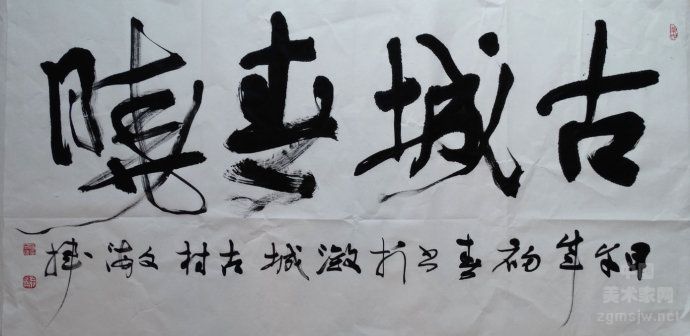 古城春晓
甲午歲初春书於城古村文海
中国
美术家网
zgmsjw.net